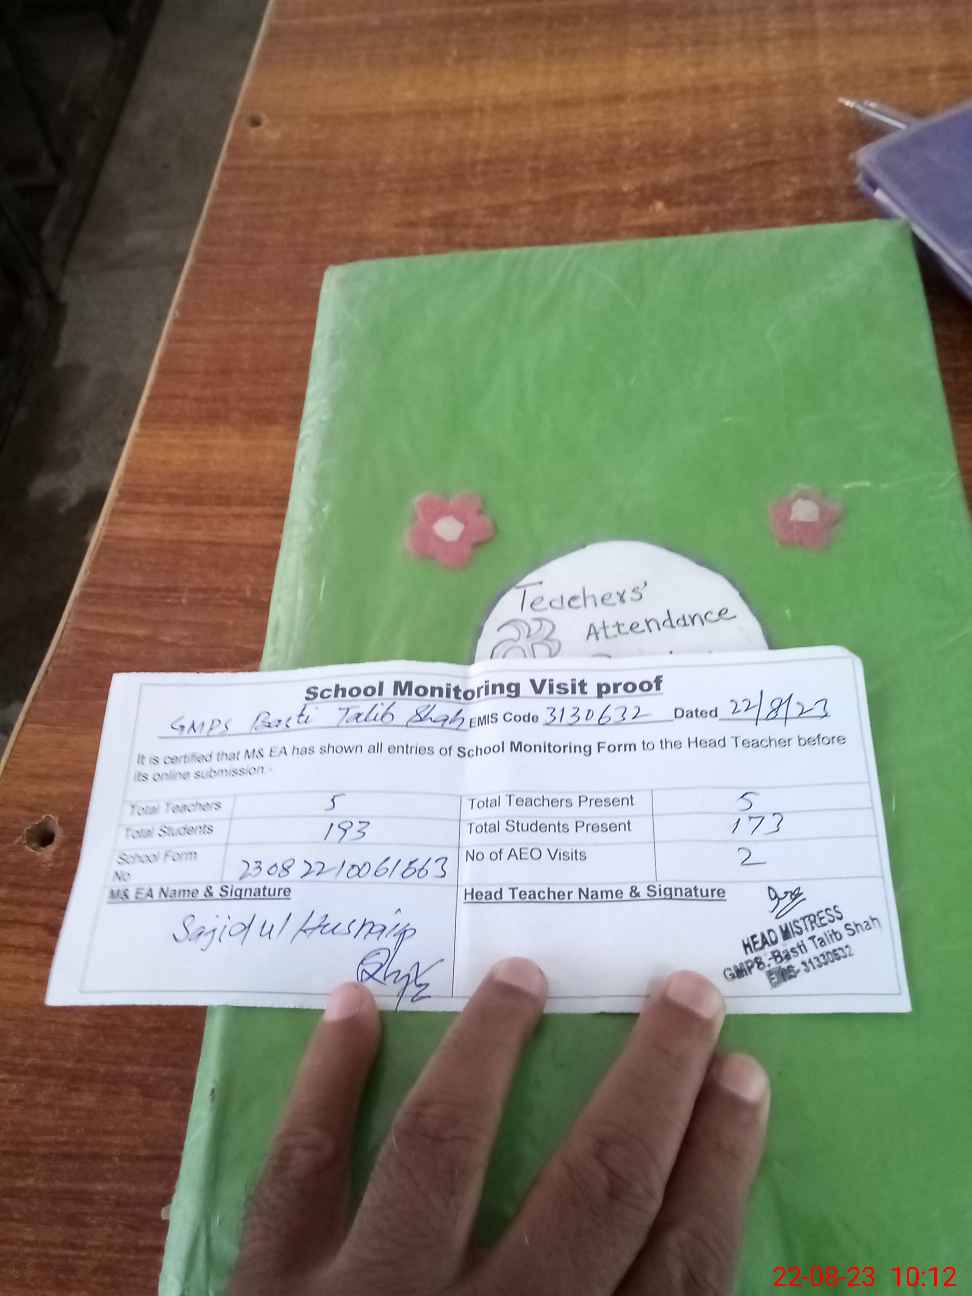 Teachers'
Attendance
School Monitoring Visit proof
GMPS Basti Talib Shah EMIS Code 3130632 Dated 22/8/23
It is certified that M& EA has shown all entries of School Monitoring Form to the Head Teacher before
its online submission -
Total Teachers 5 Total Teachers Present 5
Total Students 193 Total Students Present 173
School Form
No 23082210061663 No of AEO Visits 2
M& EA Name & Signature Head Teacher Name & Signature
Sajid ul Husnain
HEAD MISTRESS
GMPS:-Basti Talib Shah
31330632
22-08-23 10:12